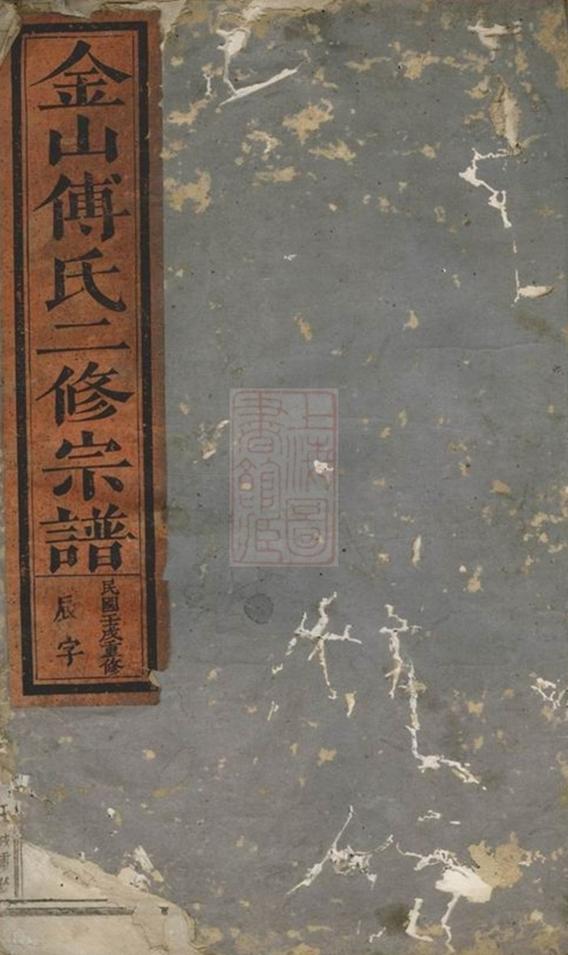 金山傅氏二修宗譜
民國壬戌重修
辰字
上海圖
書館臧